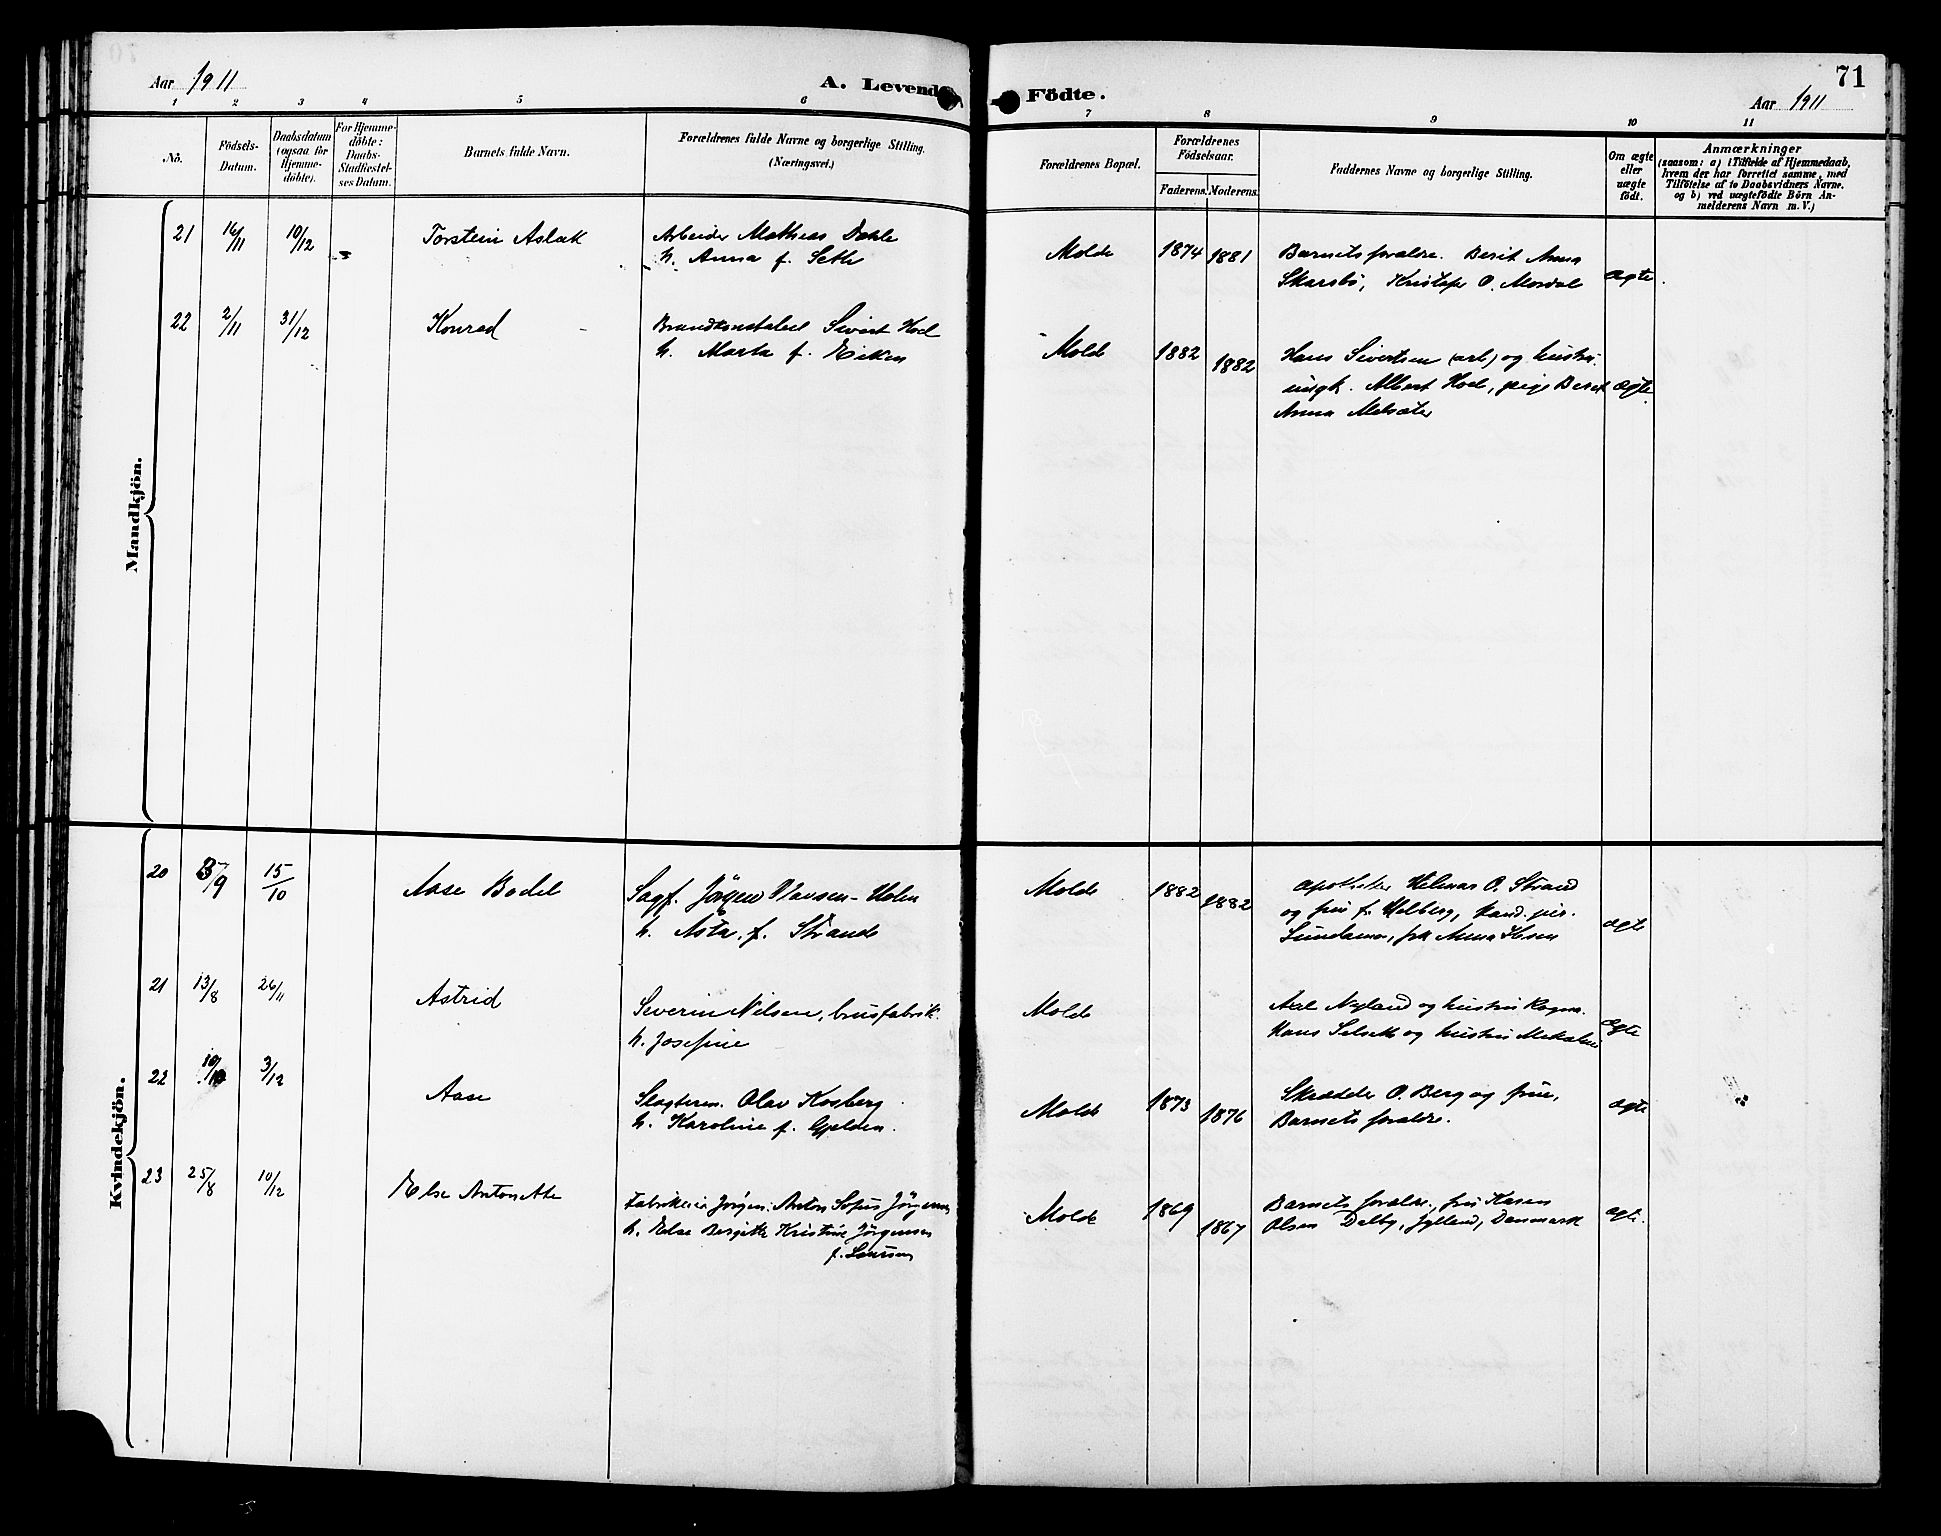 Aar 1911
A. Levende Födte.
71
Aar 1911
1 2 3 4 5 6 7 8 9 10 11
No.
Födsels-
Datum.
Daabsdatum
(ogsaa for
Hjemme-
döbte).
For Hjemme-
döbte:
Daabs-
Stadfæstel-
ses Datum.
Barnets fulde Navn.
Forældrenes fulde Navne og borgerlige Stilling.
(Næringsvei.)
Forældrenes Bopæl.
Forældrenes
Födselsaar.
Faderens. Moderens.
Faddernes Navne og borgerlige Stilling.
Om ægte
eller
uægte
födt.
Anmærkninger
(saasom: a) i Tilfælde af Hjemmedaab,
hvem der har forrettet samme, med
Tilföielse af to Daabsvidners Navne.
og b) ved uægtefödte Börn An-
melderens Navn m. V.)
Mandkjön.
21 16/11 10/12 Torstein Aslak
Arbeider Mathias Dahle
h. Anna f. Sethe
Molde 1874 1881
Barnets forældre. Berit Anna
Skarsbö, Kristofer O. Mordal
ægte
22 2/11 31/12 Konrad
Brandkonstabel Sivert Hoel
h. Marta f. Eiken
Molde 1882 1882
Hans Sivertsen (arb) og hustru
ungk. Albert Hoel, pige Beret
Anna Melsæter
ægte
Kvindekjön.
20 5/9 15/10 Aase Bodil
Sagf. Jörgen Hansen-Holm
h. Asta f. Strande
Molde 1882 1882
apotheker Helmar O. Strand
og frue f. Helberg, kand. jur.
Sundamo, frk Anna Ibsen
ægte
21 13/8 26/11 Astrid
Severin Nilsen, brusfabrik.
h. Josefine
Molde
Axel Nyland og hustru Ragna.
Hans Selseth og hustru
ægte
22 10/10 3/12 Aase
Slagterm. Olav Kosberg
h. Karoline f. Gjelden.
Molde 1873 1876
Skrædder O. Berg og frue,
Barnets forældre.
ægte
23 25/8 10/12 Else Antonette
Fabrikeier Jörgen Anton Sofus Jörgensen
h. Else Birgitte Kristine Jörgensen
f. Laursen
Molde 1869 1867
Barnets forældre, fru Karen
Olsen Dalby, Jylland, Danmark
ægte.